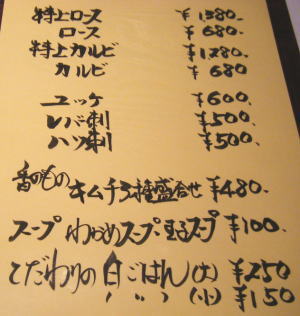 特上ロース ¥1,380-
ロース ¥680-
特上カルビ ¥1,280-
カルビ ¥680
ユッケ ¥600.
レバ刺 ¥500.
ハツ刺 ¥500.
香のもの キムチ3種盛合せ ¥480.
スープ わかめスープ・玉子スープ ¥100.
こだわりの白ごはん (大) ¥250
〃 〃 (小) ¥150